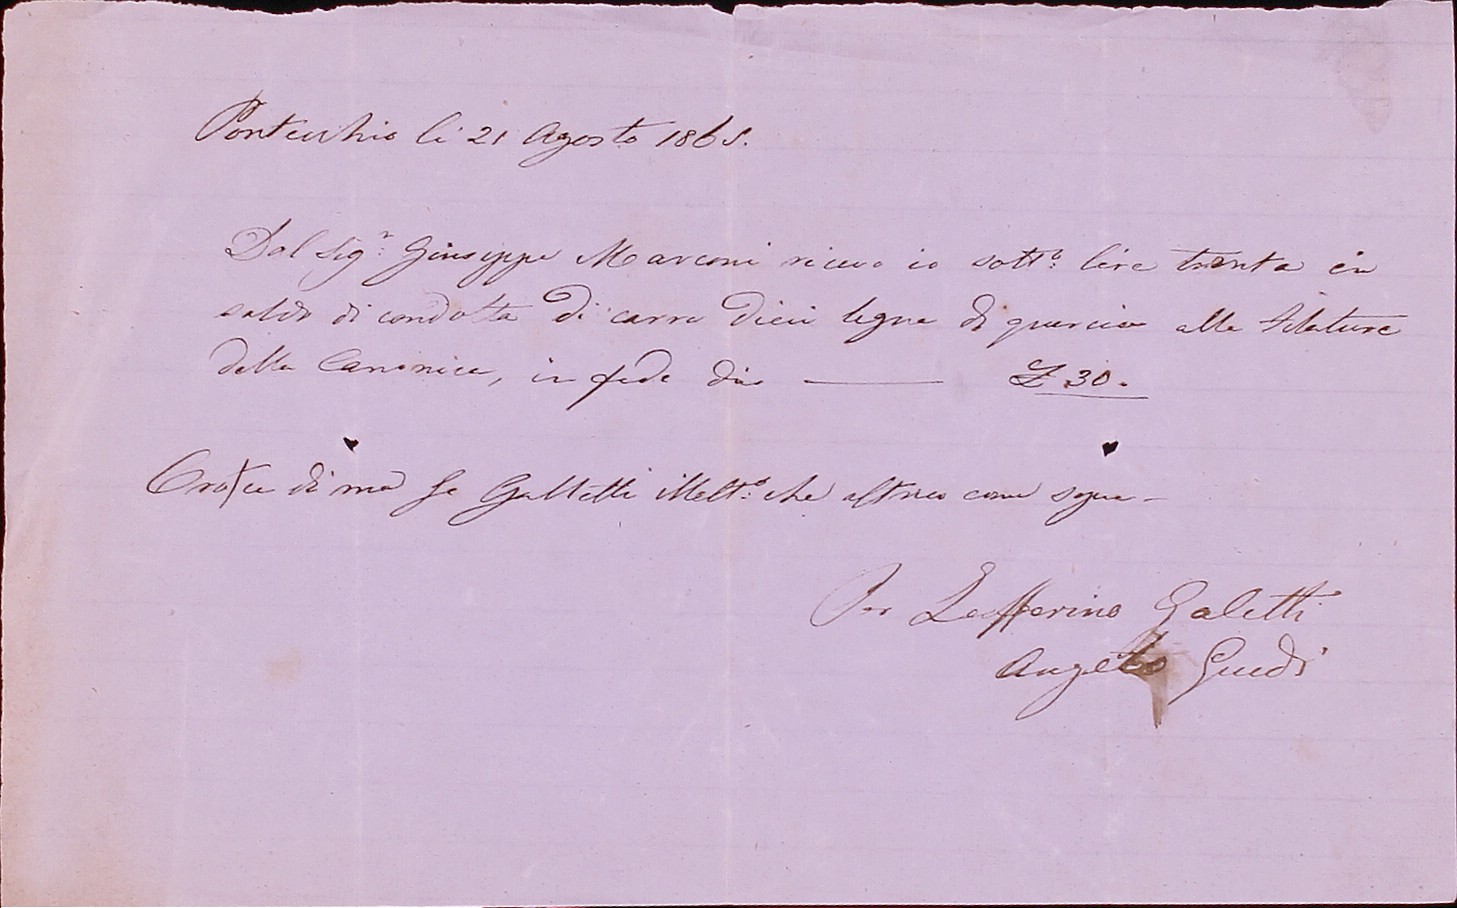 Pontecchio li 21 Agosto 1865.
Dal Sigr. Giuseppe Marconi ricevo io sotto. lire trenta in
saldo di condotta di carra dieci legne di quercia alla filatura
della Canonica, in fede dico £ 30.
Cro+ce di me Galletti illetto. che
Per Zefferino Galetti
Angelo Guidi